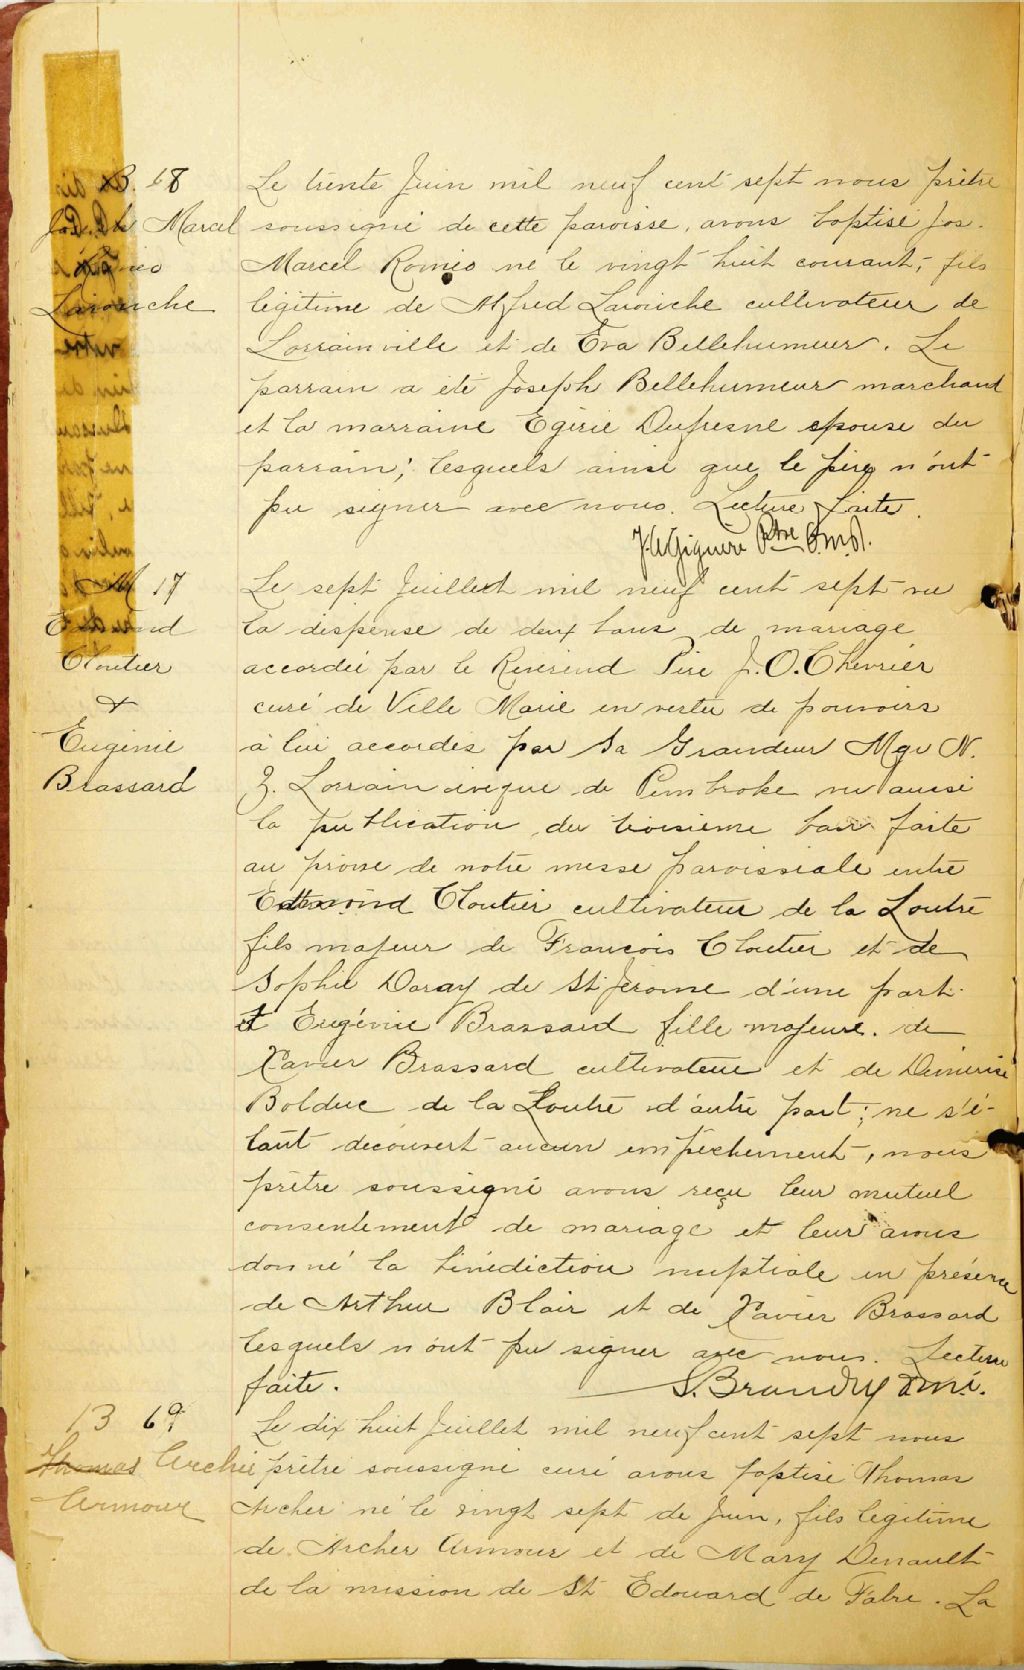 B. 68
Joseph Marcel
Roméo
Larouche
Le trente Juin mil neuf cent sept nous prêtre
soussigné de cette paroisse, avons baptisé Jos.
Marcel Roméo né le vingt huit courant, fils
légitime de Alfred Larouche cultivateur de
Lorrainville et de Eva Bellehumeur. Le
parrain a été Joseph Bellehumeur marchand
et la marraine Egérie Dufresne épouse du
parrain; lesquels ainsi que le père n'ont
pu signer avec nous. Lecture faite.
J.A. Giguère Ptre O.m.I.
M 17
Edmond
Cloutier
&
Eugénie
Brassard
Le sept Juillet mil neuf cent sept vu
la dispense de deux bans de mariage
accordée par le Révérend Père J.O. Chevrier
curé de Ville Marie en vertu de pouvoirs
à lui accordés par Sa Grandeur Mgr N.
Z. Lorrain évêque de Pembroke vu aussi
la publication du troisième ban faite
au prône de notre messe paroissiale entre
Edmond Cloutier cultivateur de la Loutre
fils majeur de François Cloutier et de
Sophie Daray de St Jérome d'une part
et Eugénie Brassard fille majeure de
Xavier Brassard cultivateur et de Démérise
Bolduc de la Loutre d'autre part; ne s'é-
tant découvert aucun empêchement, nous
prêtre soussigné avons reçu leur mutuel
consentement de mariage et leur avons
donné la bénédiction nuptiale en présence
de Arthur Blair et de Xavier Brassard
lesquels n'ont pu signer avec nous. Lecture
faite. S. Beaudry omi.
B 69
Thomas Archer
Armour
Le dix huit Juillet mil neuf cent sept nous
prêtre soussigné curé avons baptisé Thomas
Archer né le vingt sept de Juin, fils légitime
de Archer Armour et de Mary Denault
de la mission de St Edouard de Fabre. La